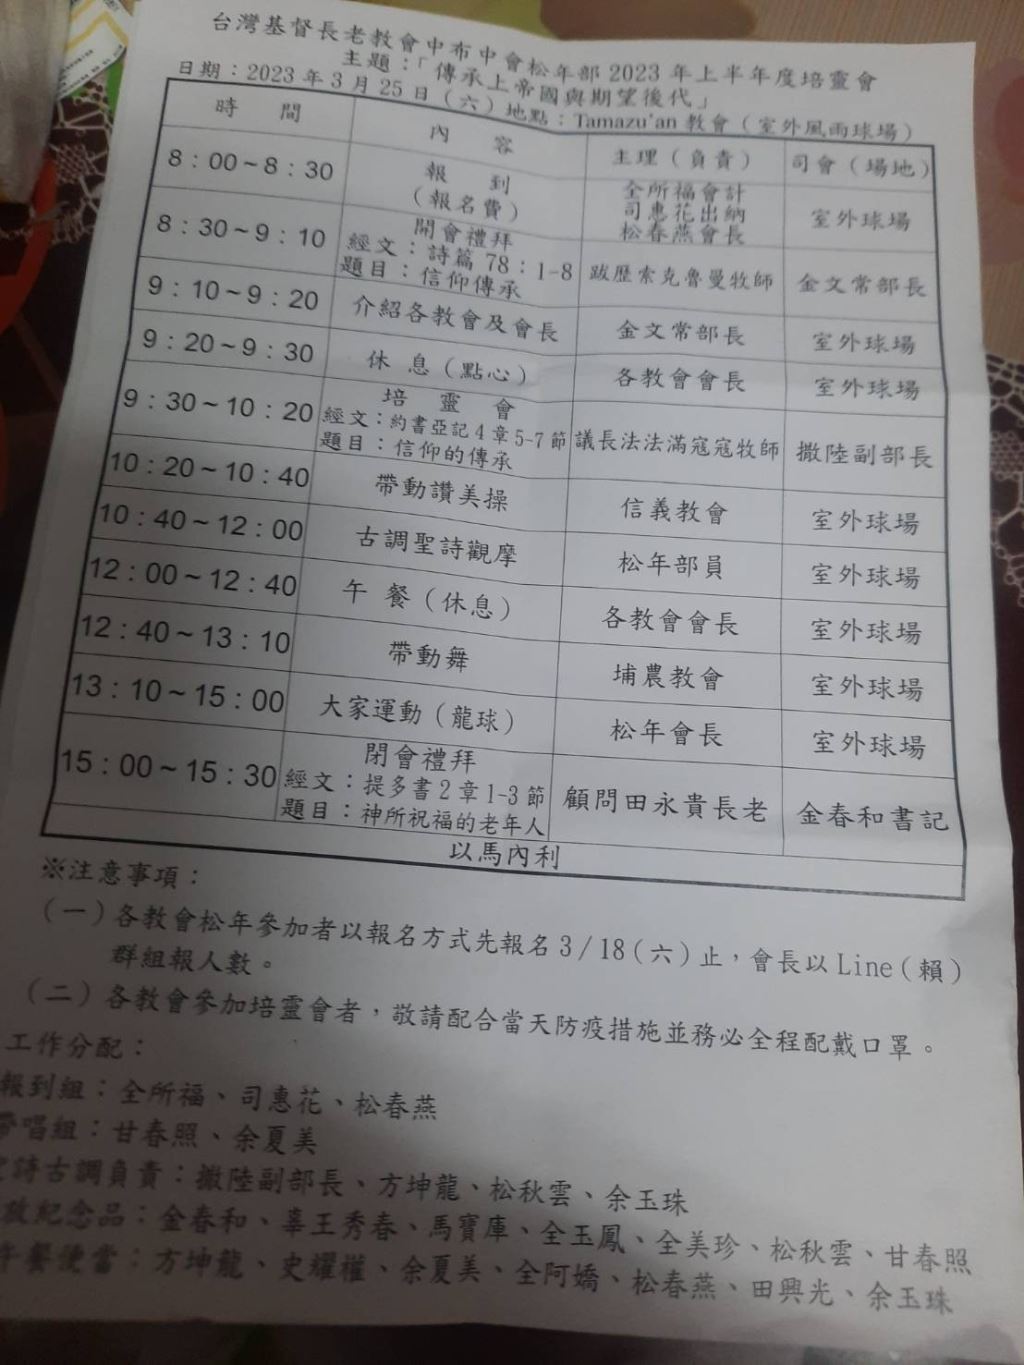 台灣基督長老教會中布中會松年部2023年上半年度培靈會
主題：「傳承上帝國與期望後代」
日期：2023年3月25日（六）地點：Tamazu'an教會（室外風雨球場）
時 間 內 容 主理（負責） 司會（場地）
8：00~8：30 報 到（報名費） 全所福會計 司惠花出納 松春燕會長 室外球場
8：30~9：10 開會禮拜 經文：詩篇78：1-8 題目：信仰傳承 跋歷索克魯曼牧師 金文常部長
9：10~9：20 介紹各教會及會長 金文常部長 室外球場
9：20~9：30 休 息（點心） 各教會會長 室外球場
9：30~10：20 培 靈 會 經文：約書亞記4章5-7節 題目：信仰的傳承 議長法法滿寇寇牧師 撒陸副部長
10：20~10：40 帶動讚美操 信義教會 室外球場
10：40~12：00 古調聖詩觀摩 松年部員 室外球場
12：00~12：40 午 餐（休息） 各教會會長 室外球場
12：40~13：10 帶動舞 埔農教會 室外球場
13：10~15：00 大家運動（龍球） 松年會長 室外球場
15：00~15：30 閉會禮拜 經文：提多書2章1-3節 題目：神所祝福的老年人 顧問田永貴長老 金春和書記
以馬內利
※注意事項：
（一）各教會松年參加者以報名方式先報名3/18（六）止，會長以Line（賴）
群組報人數。
（二）各教會參加培靈會者，敬請配合當天防疫措施並務必全程配戴口罩。
工作分配：
報到組：全所福、司惠花、松春燕
帶唱組：甘春照、余夏美
詩古調負責：撒陸副部長、方坤龍、松秋雲、余玉珠
紀念品：金春和、辜王秀春、馬寶庫、全玉鳳、全美珍、松秋雲、甘春照
午餐便當：方坤龍、史耀權、余夏美、全阿嬌、松春燕、田興光、余玉珠